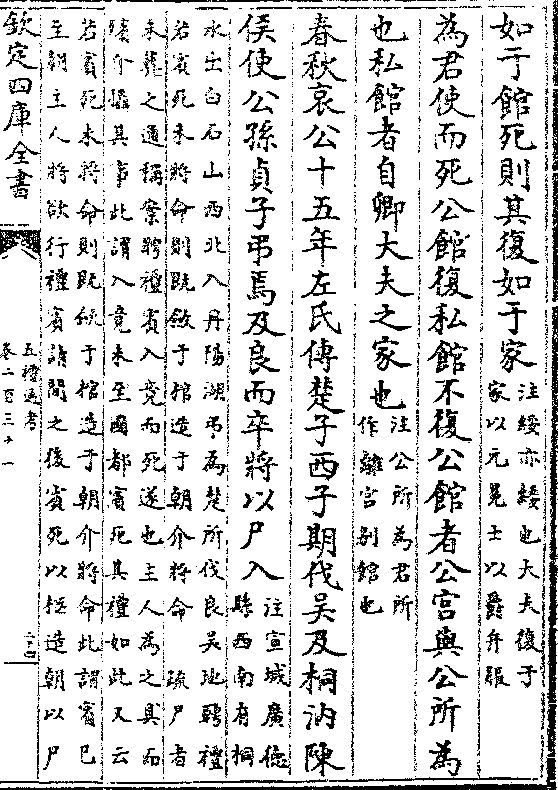 如于館死則其復如于家
注綏亦緌也大夫復于
家以元冕士以爵弁服
為君使而死公館復私館不復公館者公宮與公所為
也私館者自卿大夫之家也
注公所為君所
作離宮别館也
春秋哀公十五年左氏傳楚子西子期伐吳及桐汭陳
侯使公孫貞子弔焉及良而卒將以尸入
注宣城廣徳
縣西南有桐
水出白石山西北入丹陽湖弔為楚所伐良吳地聘禮
若賓死未將命則既斂于棺造于朝介將命 疏尸者
未葬之通稱案聘禮賓入竟而死遂也主人為之具而
殯介攝其事此謂入竟未至國都賓死其禮如此又云
若賓死未將命則既斂于棺造于朝介將命此謂賓已
至朝主人將欲行禮賓請間之後賓死以柩造朝以尸
欽定四庫全書
五禮通考
卷二百三十一
二十四